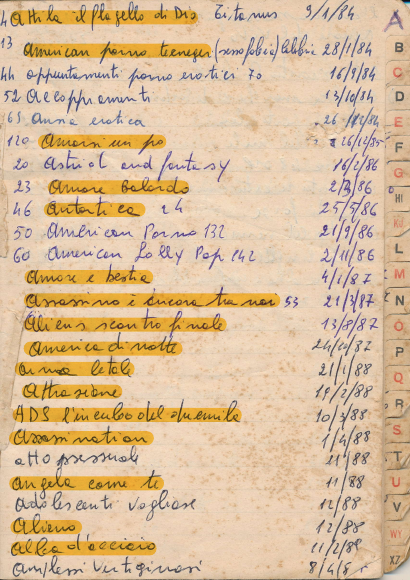 4 Attila il flagello di Dio Titanus 9/1/84
13 American porno teeneger (sessofobia) Calibria 28/1/84
44 appuntamenti porno erotici 70 16/9/84
52 Accoppiamenti 13/10/84
65 Ansia erotica 26/12/84
120 Amarsi un po 26/12/85
20 Astrid and fantasy 16/2/86
23 Amore balordo 2/3/86
46 Antartica 24 25/5/86
50 American Porno 132 21/9/86
60 American Lolly Pop 142 2/11/86
Amore e bestia 4/1/87
Assassino è ancora tra noi 53 21/3/87
Aliens scontro finale 13/8/87
America di notte 24/10/87
arma letale 21/1/88
Attrazione 15/2/88
ADS l'incubo del duemila 10/3/88
Assassination 1/4/88
atto 11/88
angela come te 11/88
Adolescenti Vogliose 12/88
Alieno 12/88
alba d'acciaio 11/2/89
Amplessi Vertiginosi 8/4/8
A
B
C
D
E
F
G
HI
KJ
L
M
N
O
P
Q
R
S
T
U
V
WY
XZ